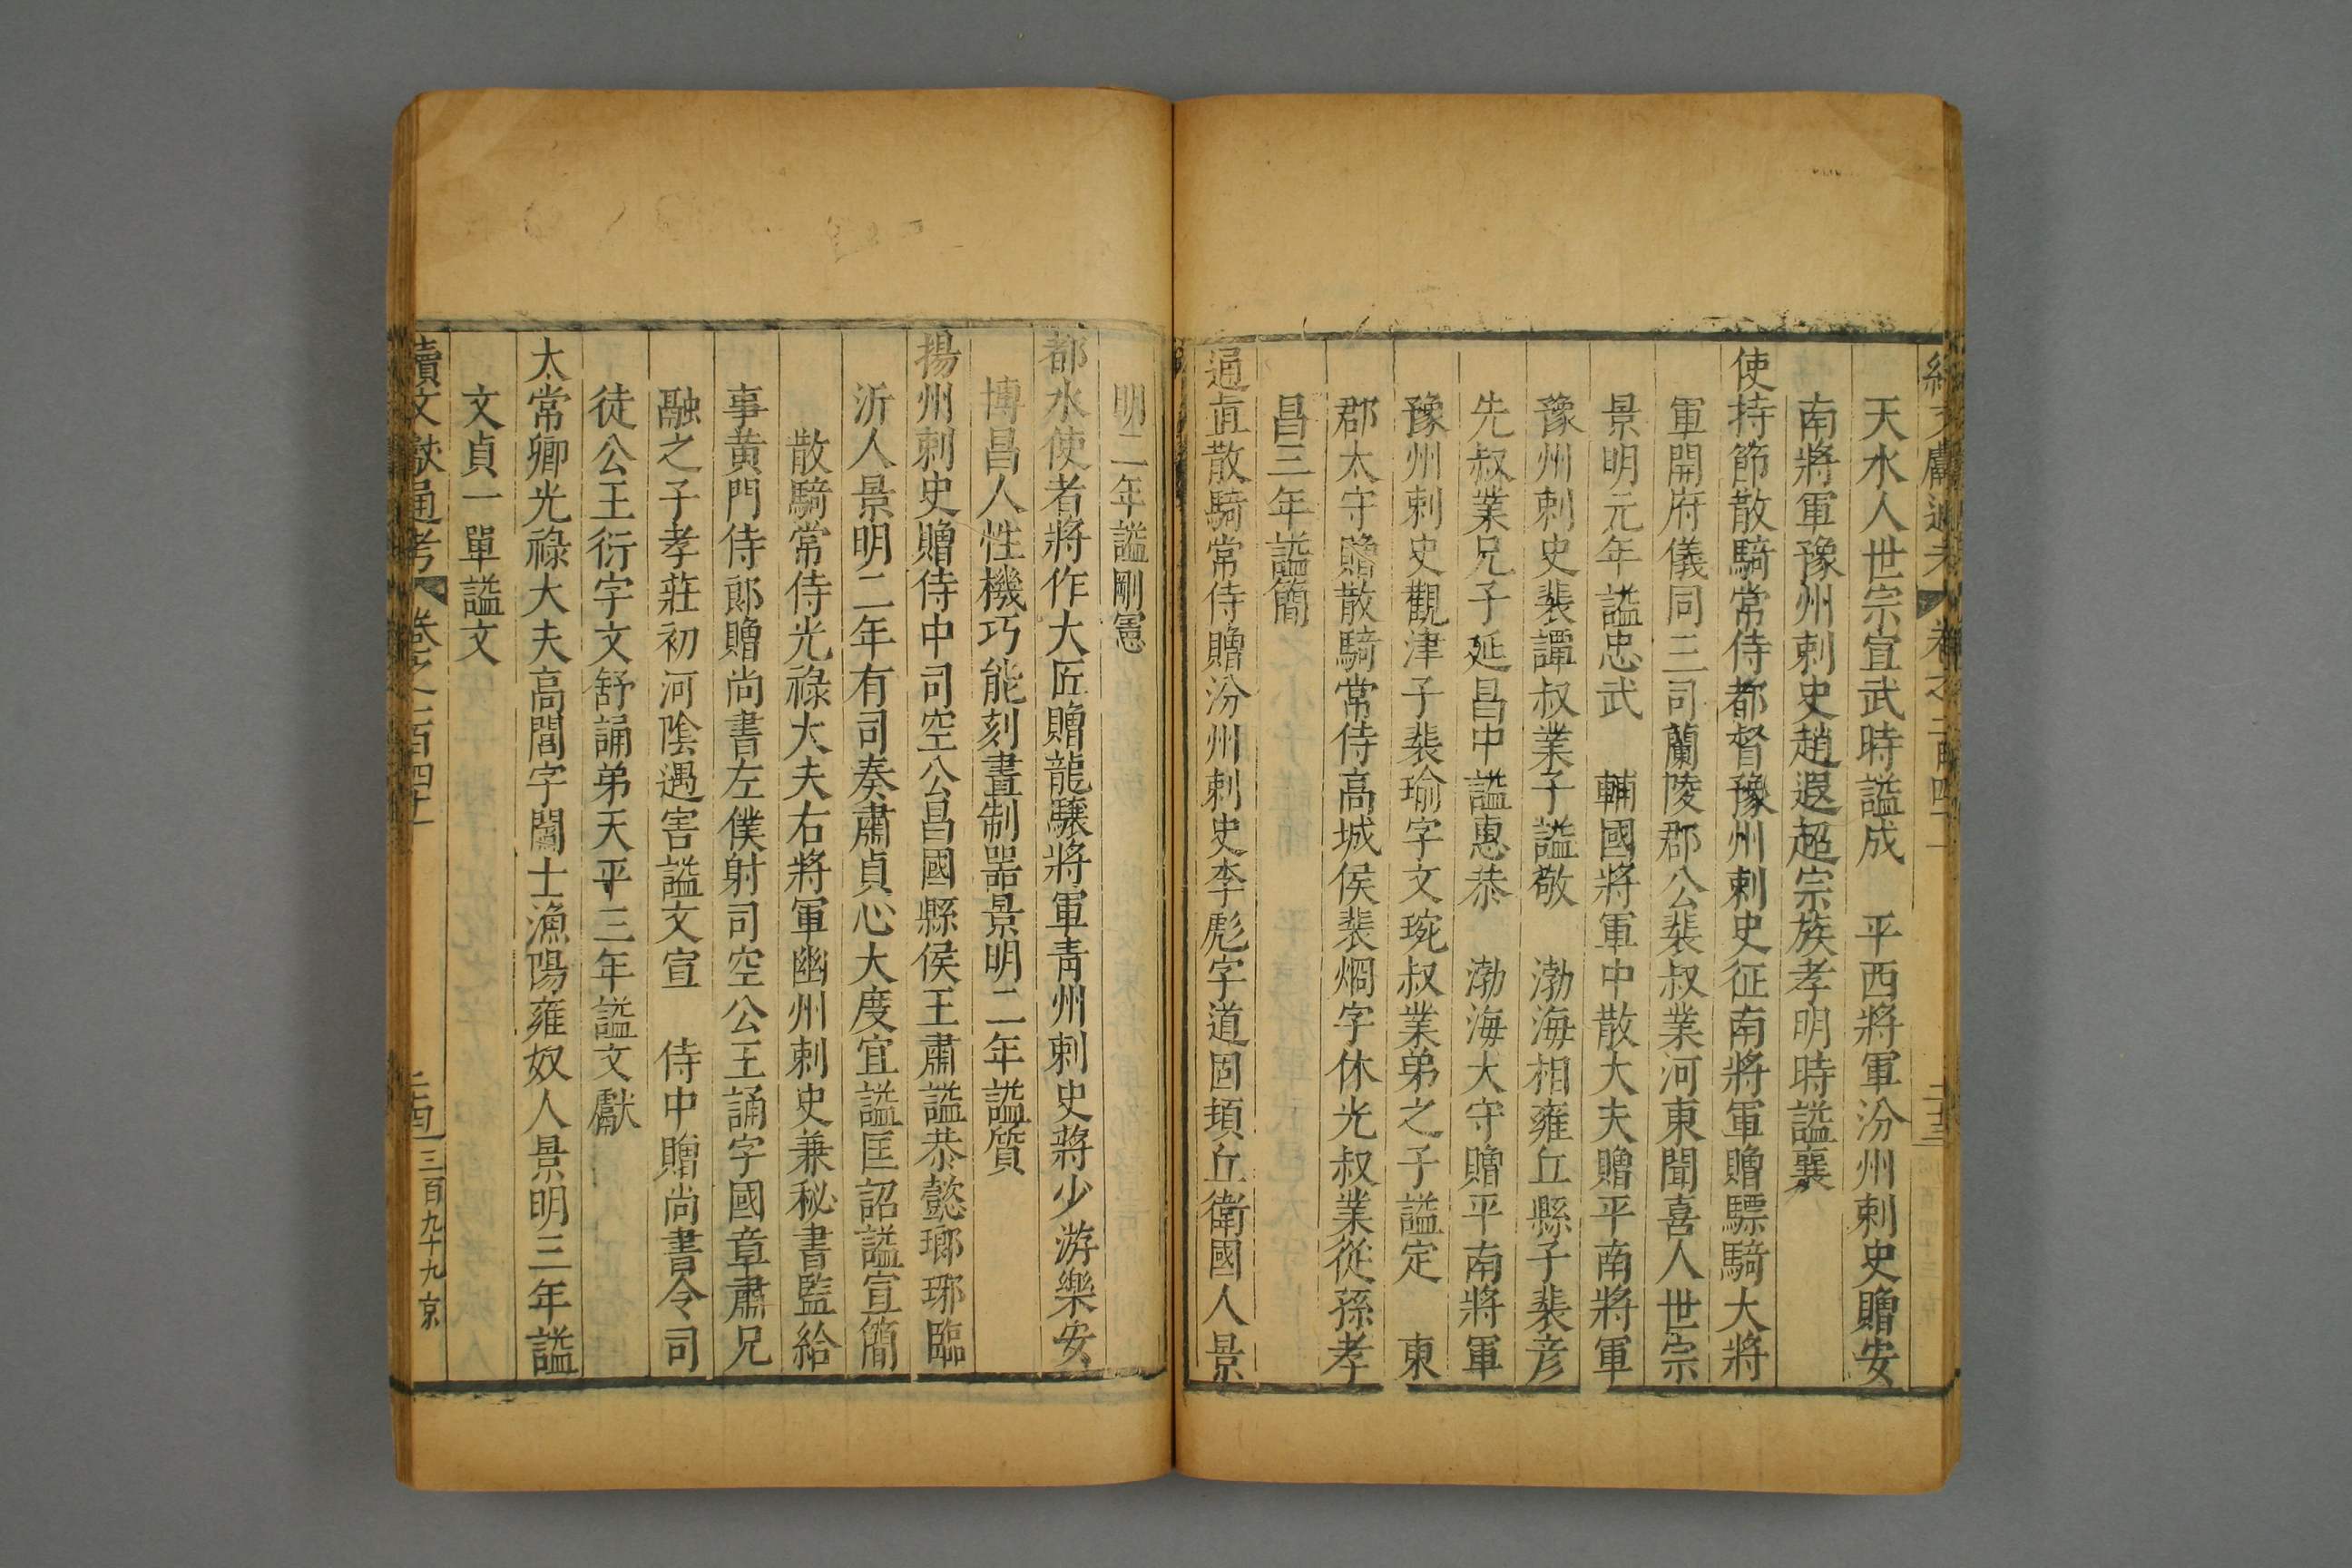 天水人世宗宣武時謚成　平西將軍汾州刺史贈安
南將軍豫州刺史趙遐超宗族孝明時謚襄
使持節散騎常侍都督豫州刺史征南將軍贈驃騎大將
軍開府儀同三司蘭陵郡公裴叔業河東聞喜人世宗
景明元年謚忠武　輔國將軍中散大夫贈平南將軍
豫州刺史裴譚叔業子謚敬　渤海相雍丘縣子裴彦
先叔業兄子延昌中謚惠恭　渤海大守贈平南將軍
豫州刺史觀津子裴瑜字文琬叔業弟之子謚定　東
郡太守贈散騎常侍高城侯裴烱字休光叔業從孫孝
昌三年謚簡
通直散騎常侍贈汾州刺史李彪字道固頊丘衛國人景
明二年謚剛憲
都水使者將作大匠贈龍驤將軍青州刺史蔣少游樂安
博昌人性機巧能刻畫制噐景明二年謚質
揚州刺史贈侍中司空公昌國縣侯王肅謚恭懿瑯琊臨
沂人景明二年有司奏肅貞心大度宜謚匡詔謚宣簡
散騎常侍光祿大夫右將軍幽州刺史兼秘書監給
事黄門侍郎贈尚書左僕射司空公王誦字國章肅兄
融之子孝莊初河陰遇害謚文宣　侍中贈尚書令司
徒公王衍字文舒誦弟天平三年謚文獻
太常卿光祿大夫高閭字閻士漁陽雍奴人景明三年謚
文貞一單謚文
續文獻通考　卷之一百四十一　二四　三百九十九京